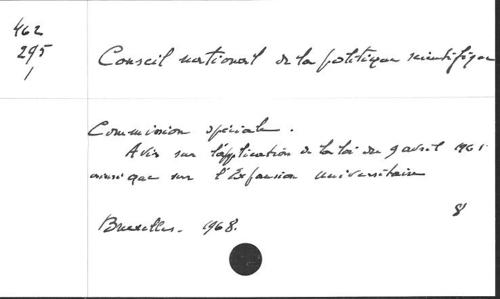 462
295
1
Conseil national de la politique scientifique
Commission spéciale.
Avis sur l'application de la loi du 9 avril 1965
ainsi que sur l'Expansion universitaire
Bruxelles. 1968.
8°